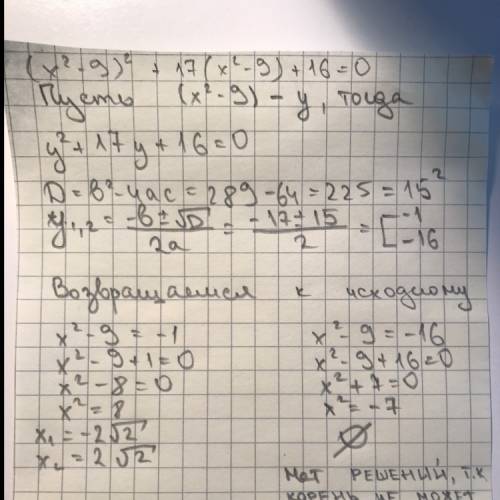 (x² - 9)² + 17(x² - 9) + 16 = 0
Пусть (x² - 9) - y, тогда
y² + 17y + 16 = 0
D = b² - 4ac = 289 - 64 = 225 = 15²
y₁,₂ = (-b ± √D)/2a = (-17 ± 15)/2 = [-1 -16
Возвращаемся к исходному
x² - 9 = -1
x² - 9 + 1 = 0
x² - 8 = 0
x² = 8
x₁ = -2√2
x₂ = 2√2
x² - 9 = -16
x² - 9 + 16 = 0
x² + 7 = 0
x² = -7
∅
Нет РЕШЕНИЙ, т.к
КОРЕНЬ НЕ МОЖЕТ